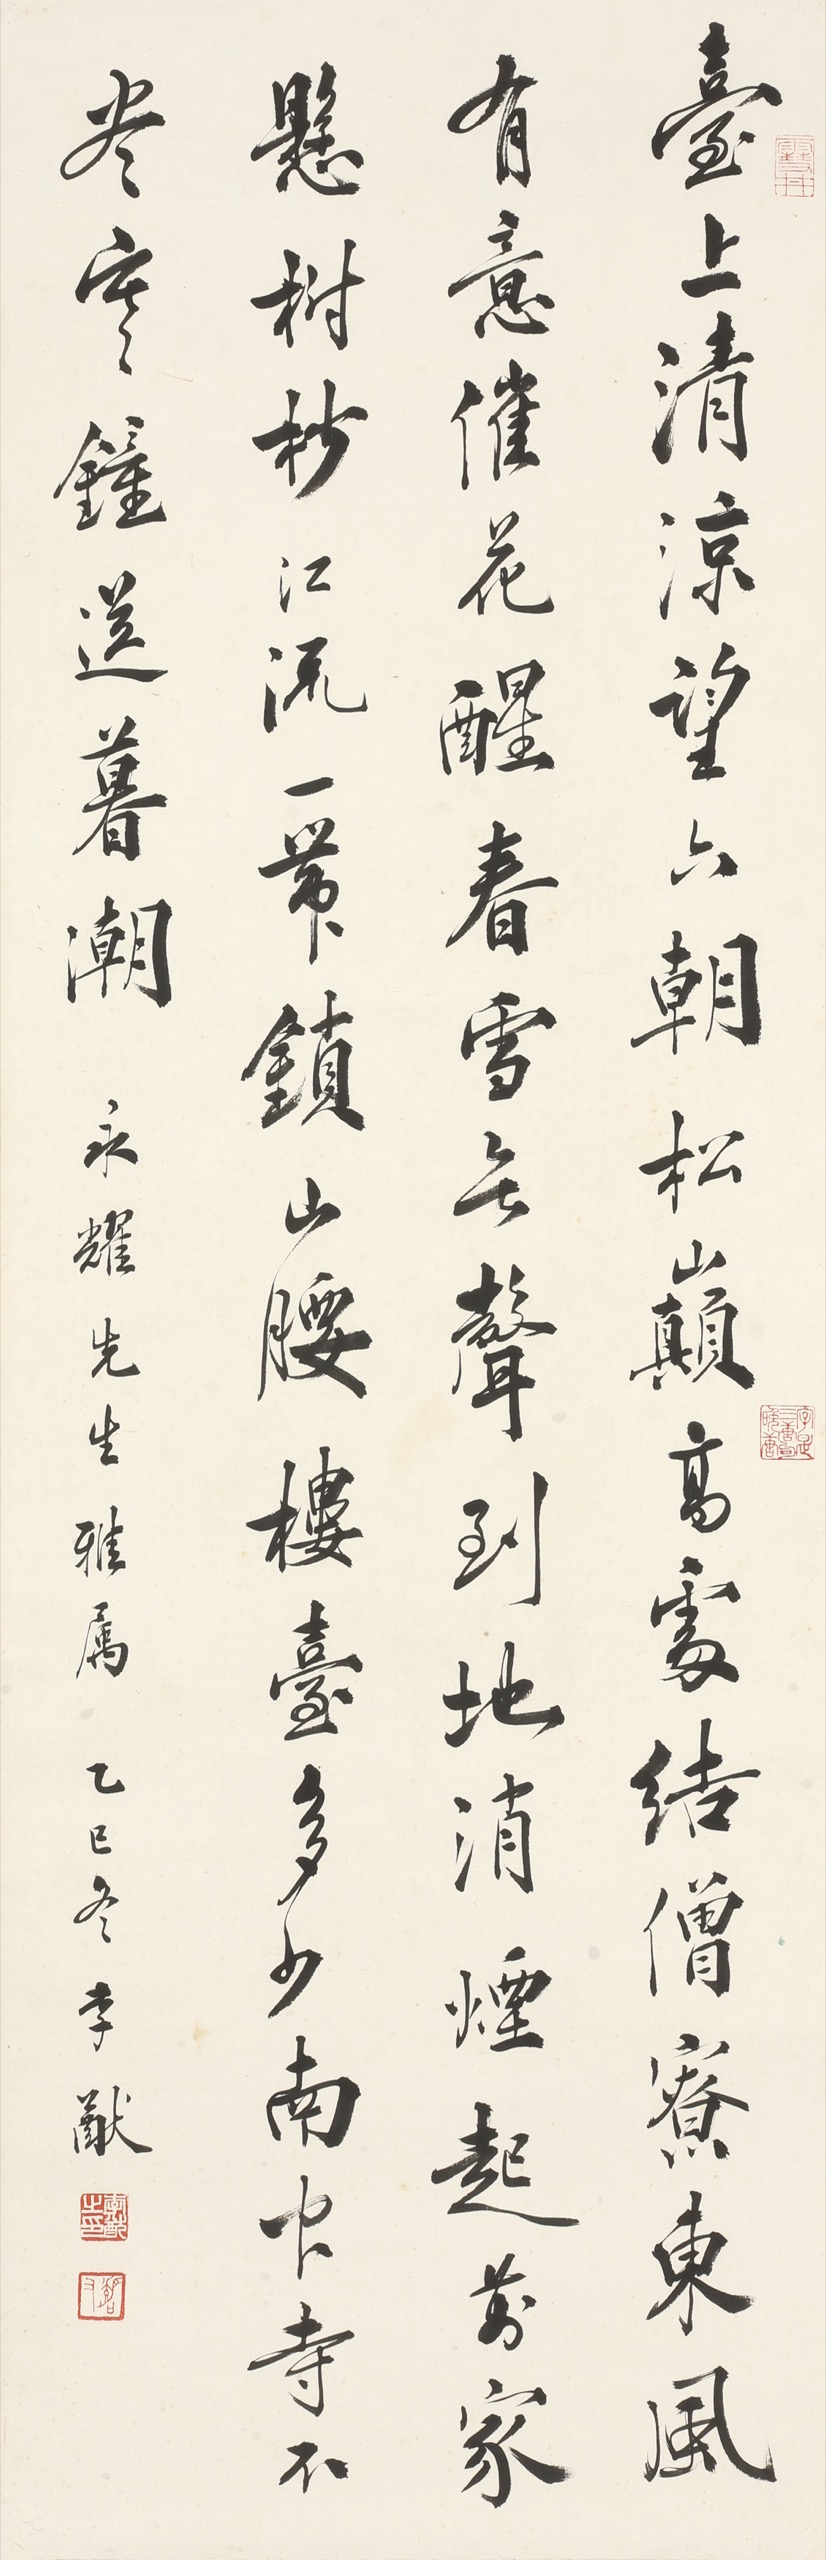 臺上清涼望六朝松巔高處結僧寮東風
有意催花醒春雪無聲到地消煙起萬家
懸樹杪江流一帶鎖山腰樓臺多少南寺不
盡寒鐘送暮潮 永耀先生雅屬 乙巳冬 李猷
李猷之印